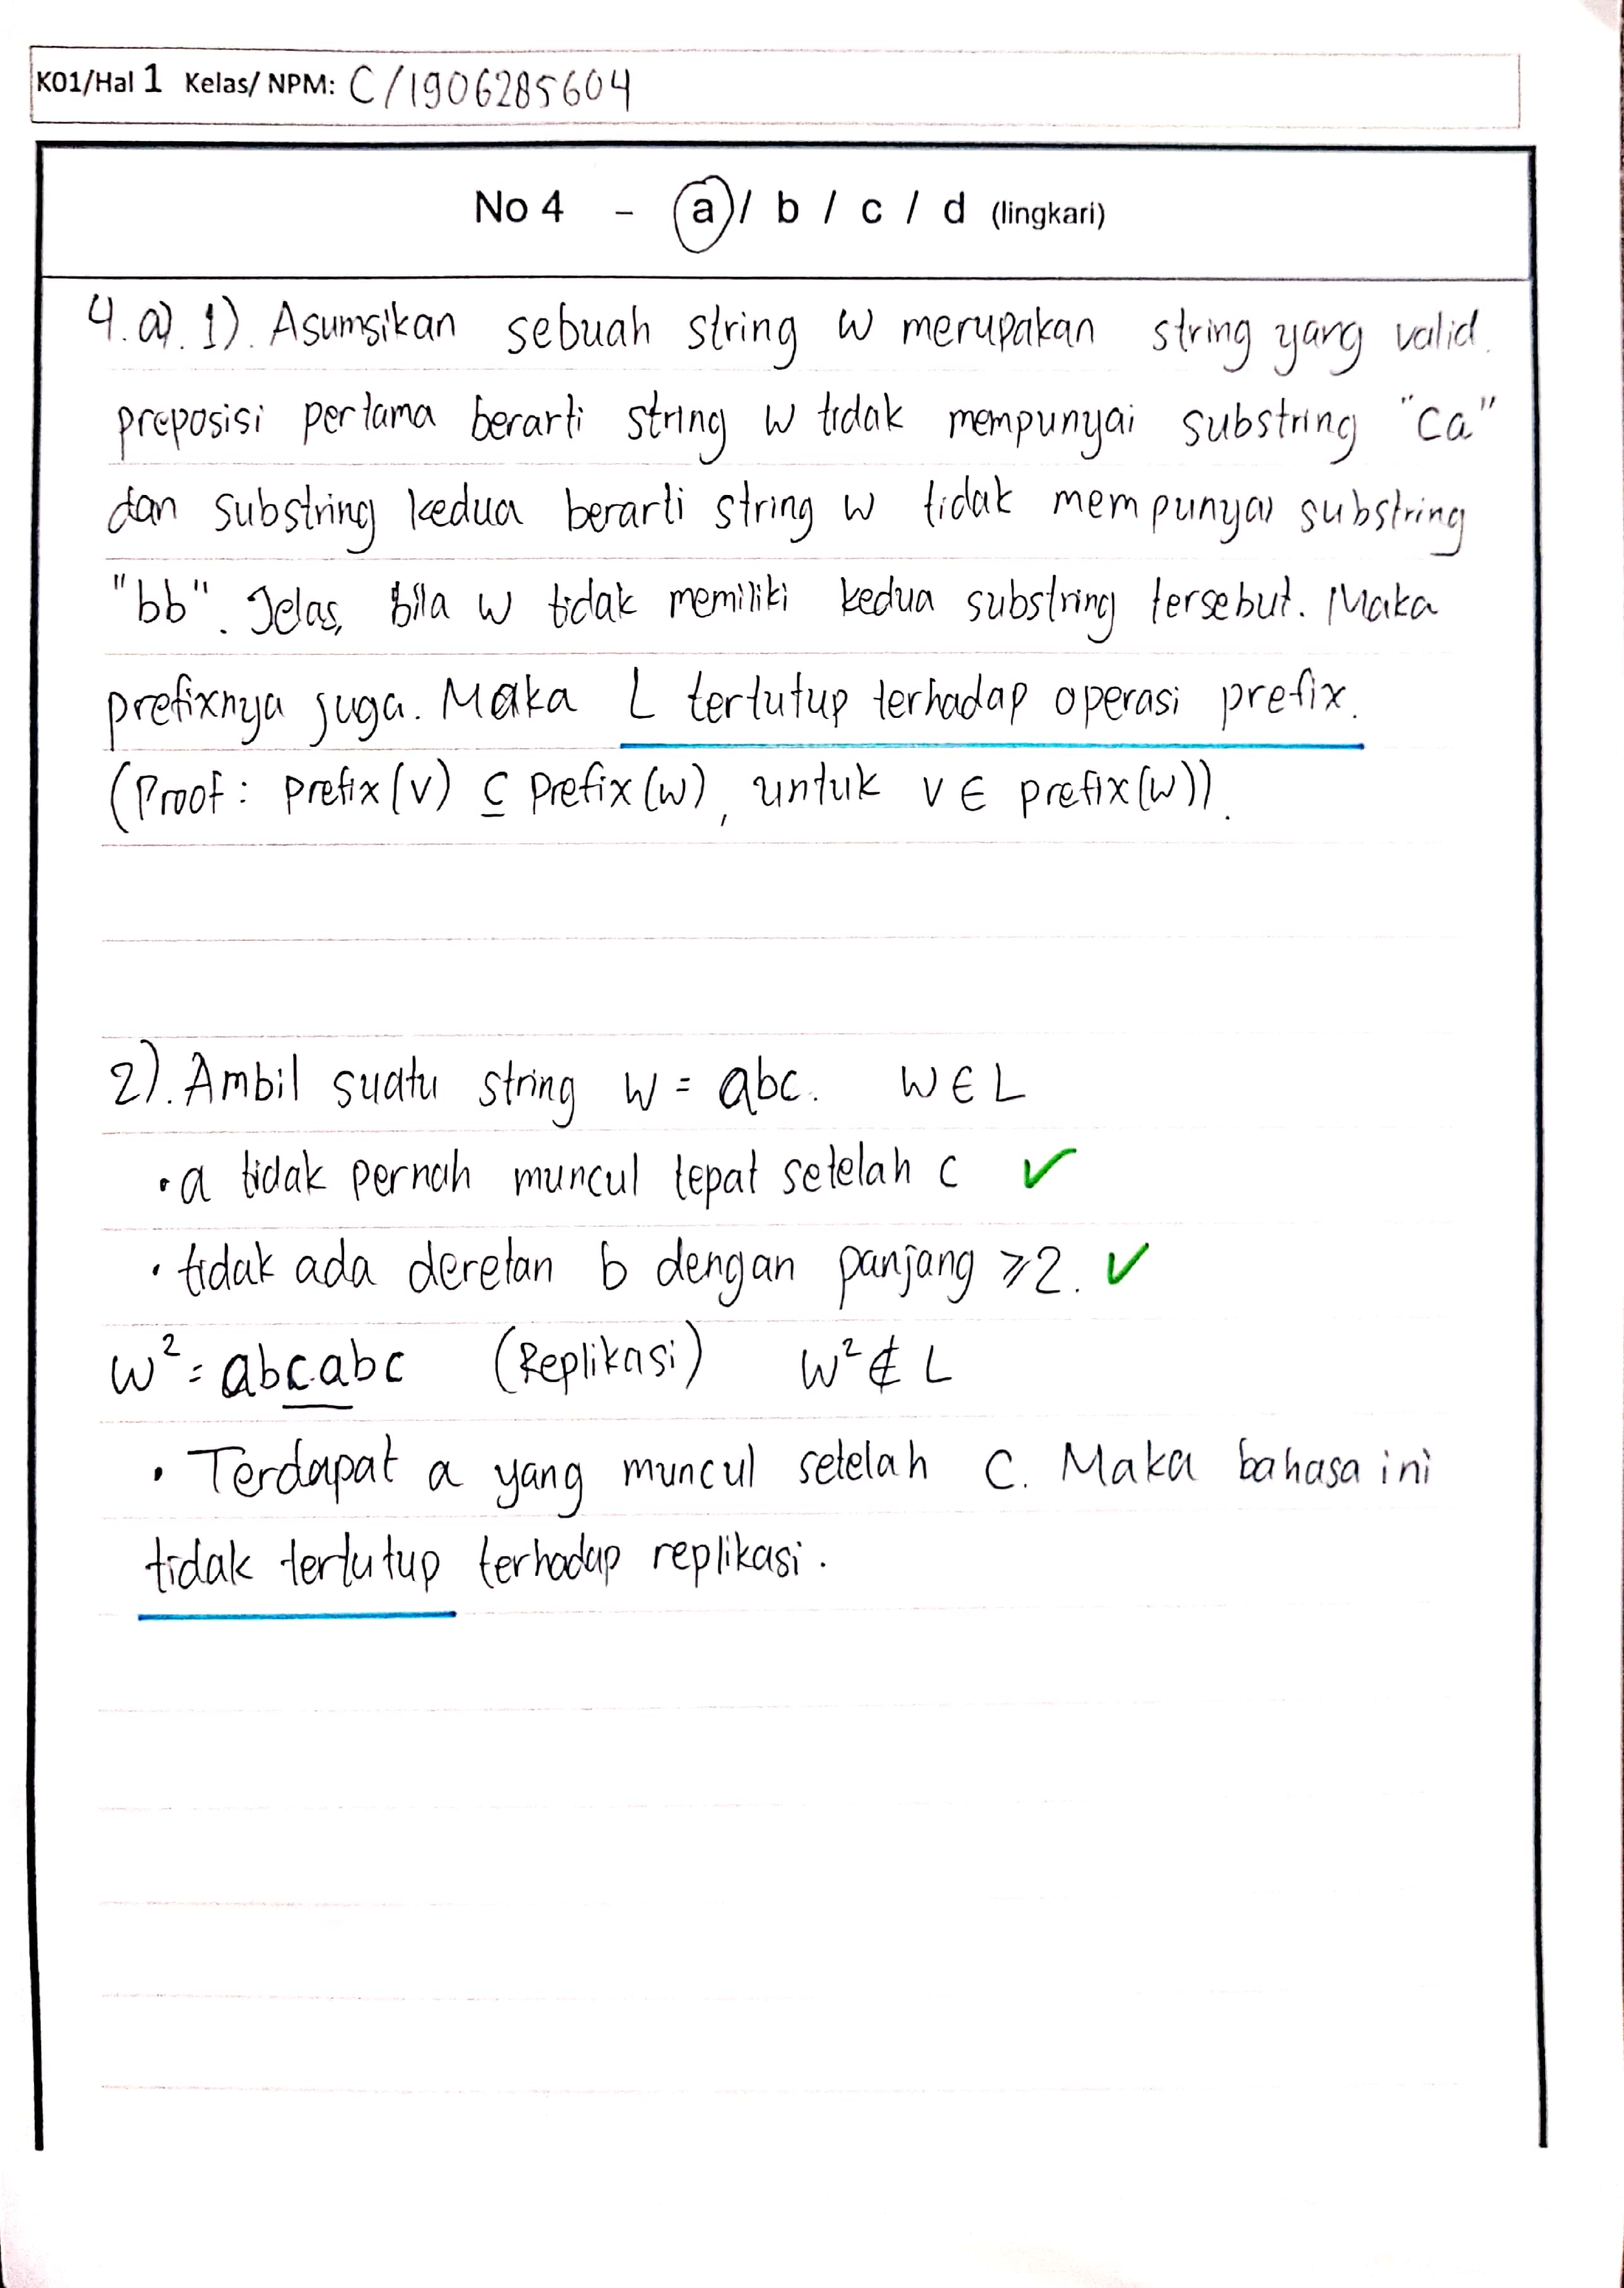 K01/Hal 1 Kelas/ NPM: C/1906285604
No 4 - a / b / c / d (lingkari)
4.a). 1). Asumsikan sebuah string w merupakan string yang valid.
preposisi pertama berarti string w tidak mempunyai substring "ca"
dan substring kedua berarti string w tidak mempunyai substring
"bb". Jelas, bila w tidak memiliki kedua substring tersebut. Maka
prefixnya juga. Maka L tertutup terhadap operasi prefix.
(Proof: prefix(v) ⊆ prefix(w), untuk v ∈ prefix(w)).
2). Ambil suatu string w = abc. w ∈ L
• a tidak pernah muncul tepat setelah c ✓
• tidak ada deretan b dengan panjang ≥2. ✓
w² = abcabc (Replikasi) w² ∉ L
• Terdapat a yang muncul setelah c. Maka bahasa ini
tidak tertutup terhadap replikasi.